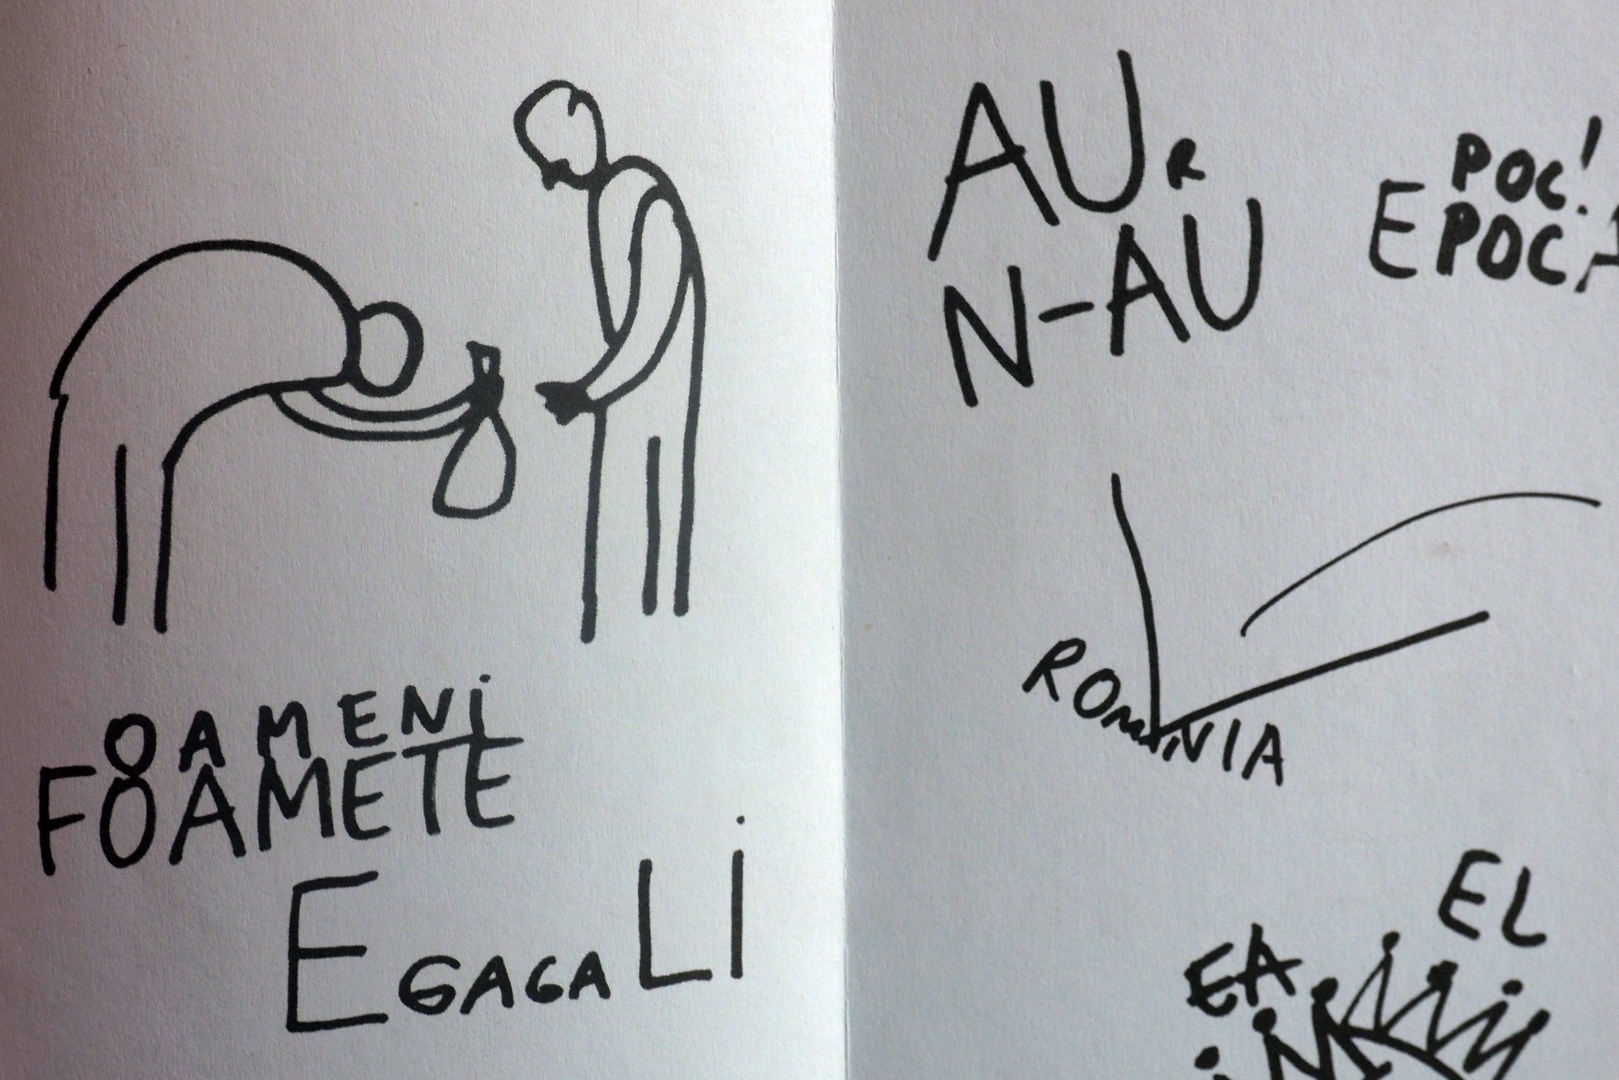 OAMENi
FOAMETE
EGAGALi
AUR
N-AU
POC!
EPOCA
ROMANIA
EL
EA